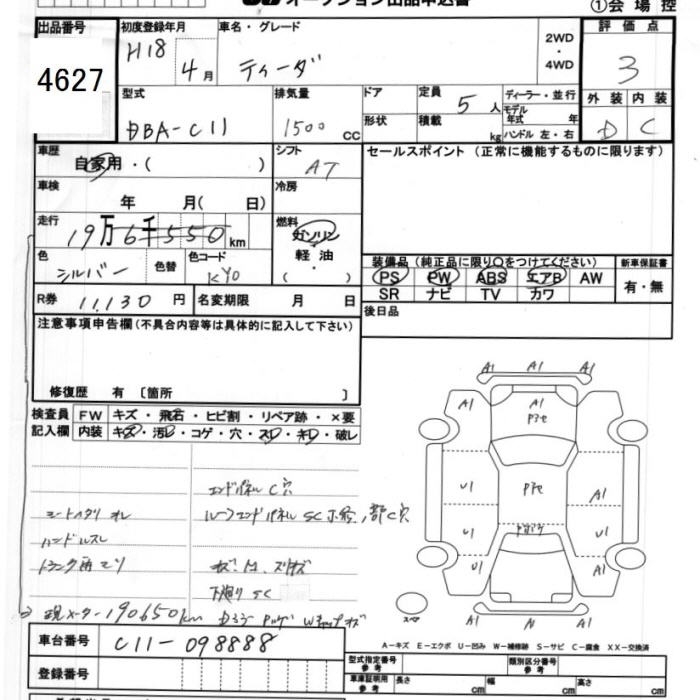 オークション出品申込書
①会場控
出品番号
4627
初度登録年月
H18
4月
車名・グレード
ティーダ
2WD
・
4WD
評価点
3
型式
DBA-C11
排気量
1500 CC
ドア
形状
定員
5人
積載
kg
ディーラー・並行
モデル
年式 年
ハンドル 左・右
外装 内装
D C
車歴
自家用・( )
シフト
AT
セールスポイント (正常に機能するものに限ります)
車検
年 月( 日)
冷房
走行
19万6千550km
燃料
ガソリン
・
軽油
・
( )
色
シルバー
色替
色コード
KY0
装備品 (純正品に限り○をつけてください)
PS PW ABS エアB AW
SR ナビ TV カワ
新車保証書
有・無
R券 11,130円
名変期限 月 日
後日品
注意事項申告欄 (不具合内容等は具体的に記入して下さい)
修復歴 有 〔箇所 〕
検査員
記入欄
FW キズ・飛石・ヒビ割・リペア跡・×要
内装 キズ・汚レ・コゲ・穴・スレ・キレ・破レ
エンドパネル C穴
シートヘタリ オレ
ハンドルスレ
下廻り SC
現メーター190650km
A1 A1 A1
A1 A1 A1
U1 A1
U1 U1
U1 A1
A1 A A1
スペア
A-キズ E-エクボ U-凹み W-補修跡 S-サビ C-腐食 XX-交換済
車台番号
C11-098888
登録番号
型式指定番号
参考
類別区分番号
参考
車庫証明用
参考
長さ cm
幅 cm
高さ cm